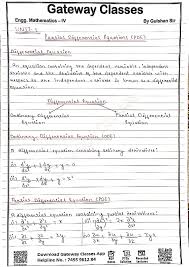 Gateway Classes
Engg. Mathematics - IV By Gulshan Sir
UNIT-1
Partial Differential Equations (PDE)
Differential Equation
An equation containing the dependent variable, independent
variable and the derivative of the dependent variable with
respect to the independent variable is known as differential
equation.
Differential Equation
Ordinary Differential Partial Differential
Equation Equation
Ordinary Differential Equation (ODE)
A differential equation containing ordinary derivatives
Partial Differential Equation (PDE)
A differential equation containing partial derivatives
Download Gateway Classes App
Helpline No. : 7455 9612 84